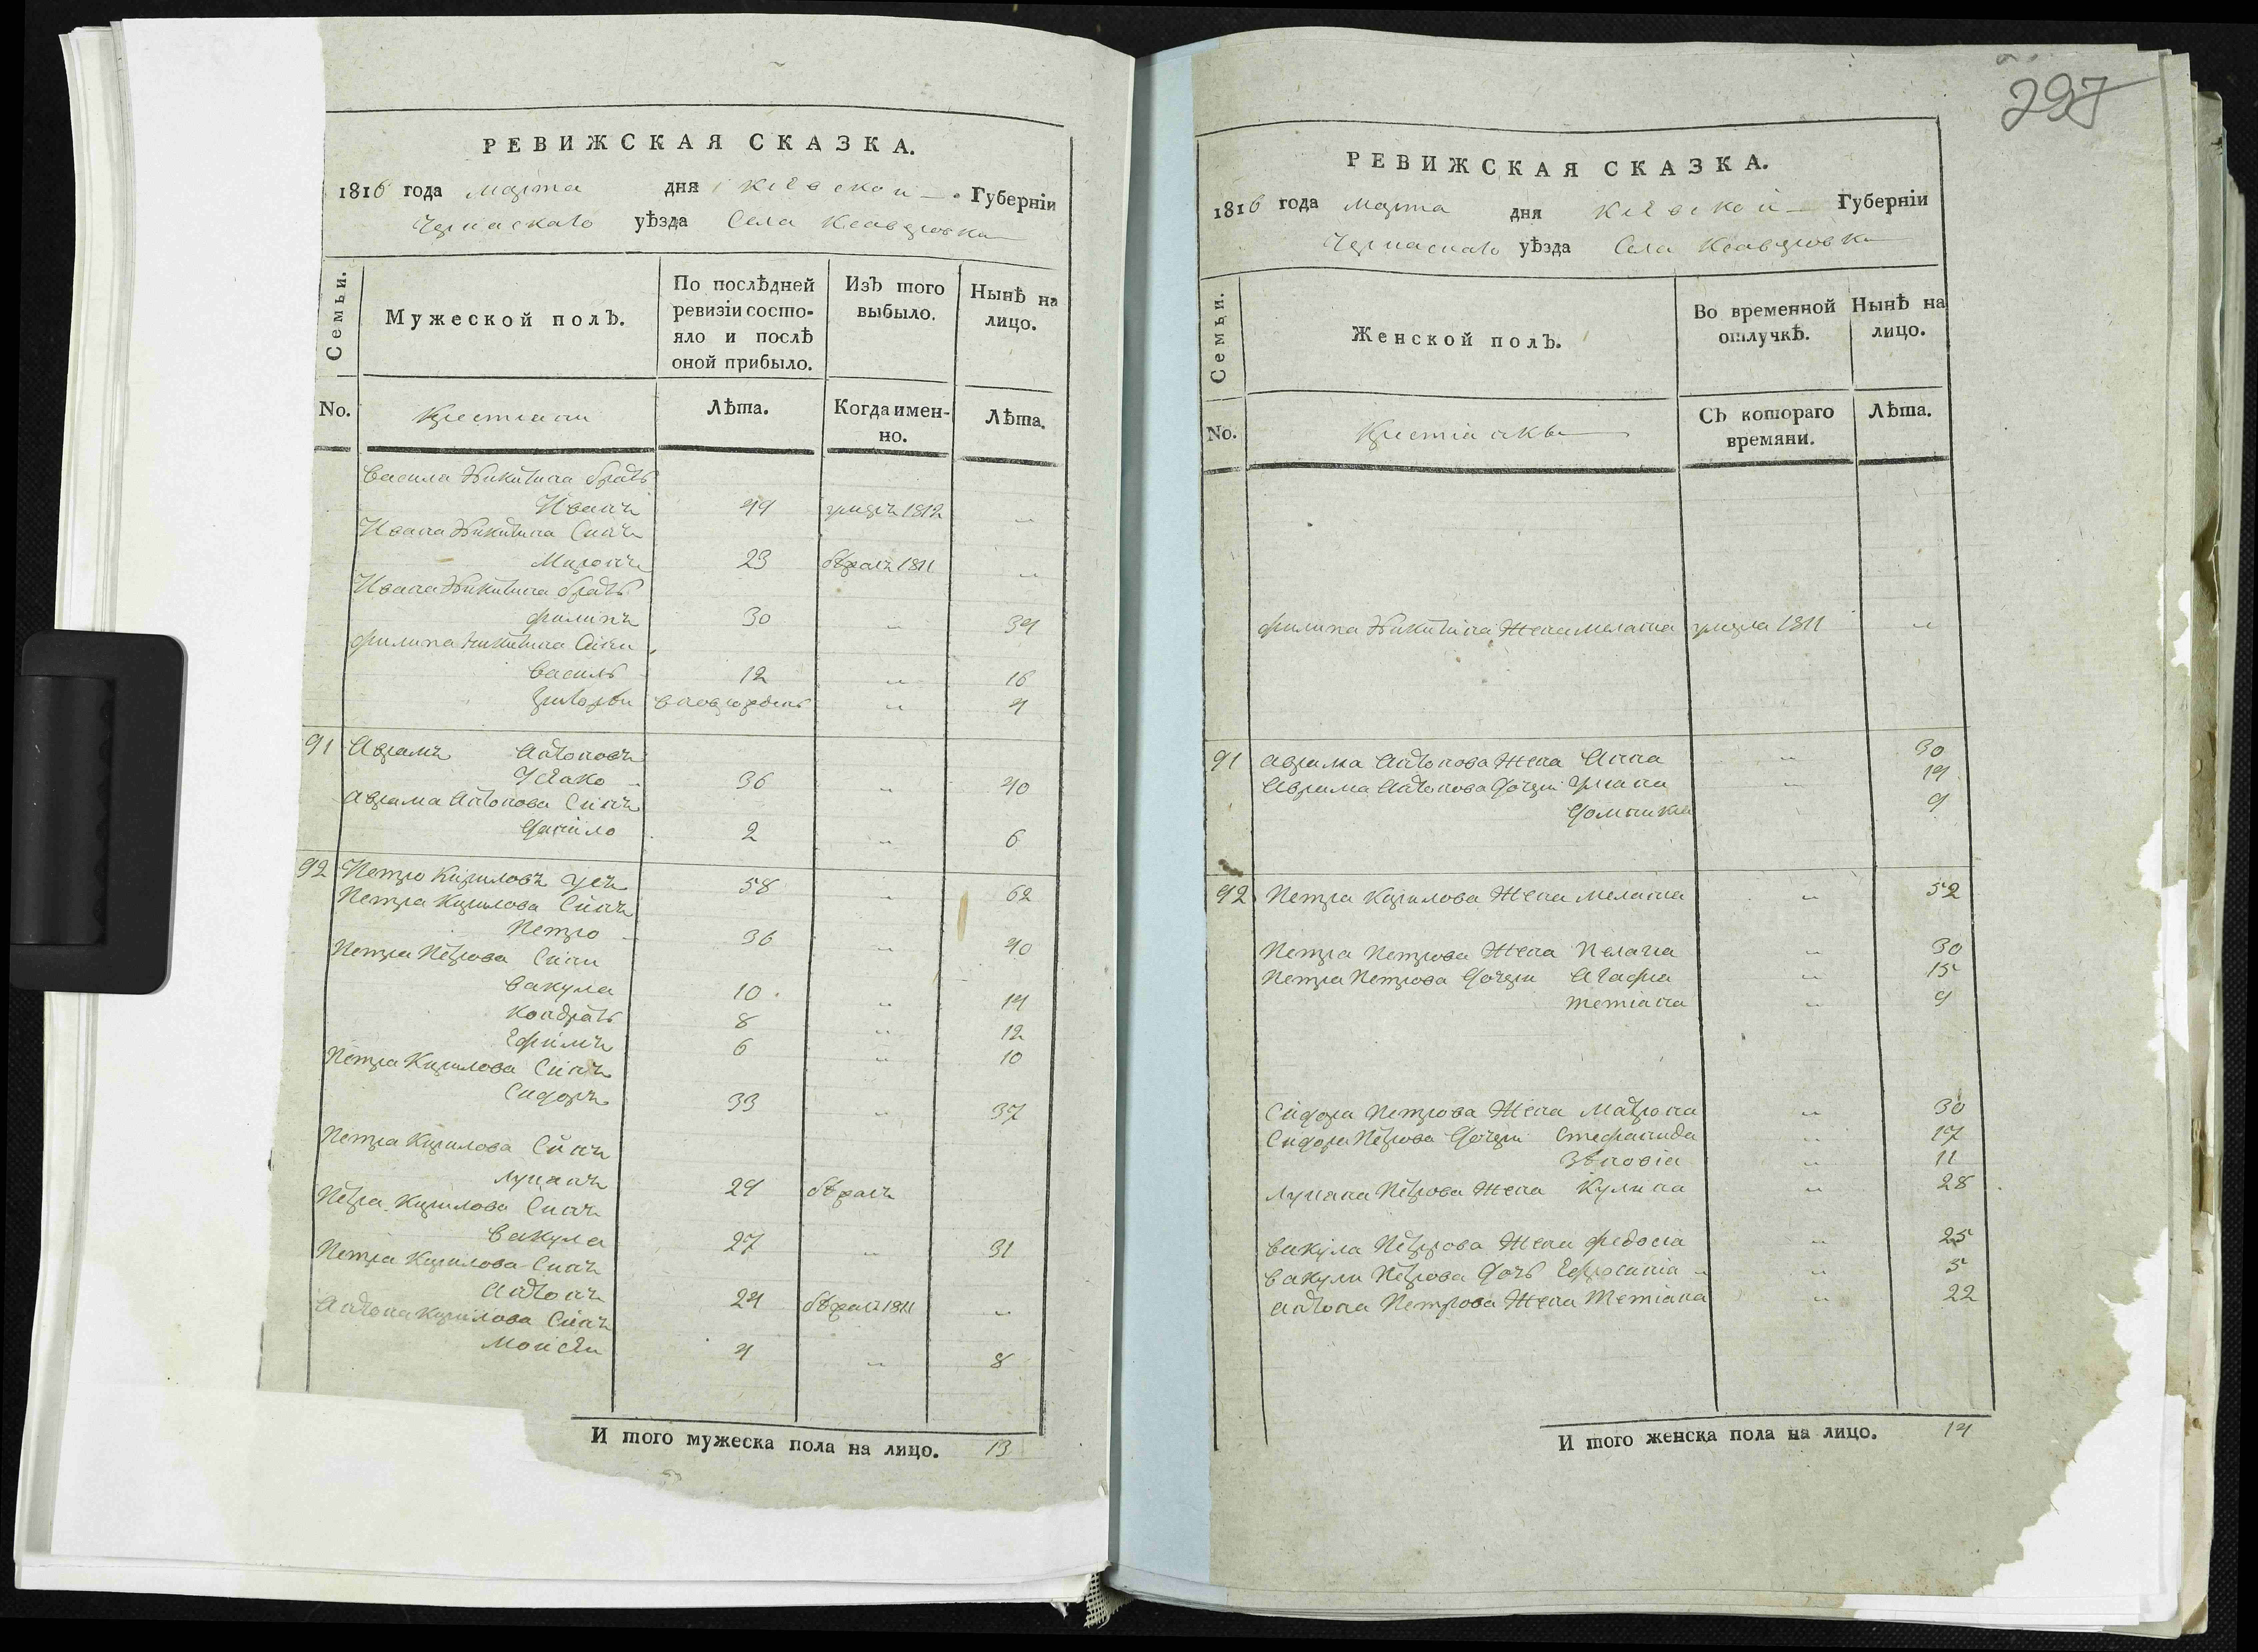 РЕВИЖСКАЯ СКАЗКА.
1816 года марта дня Кіевской Губерніи
Черкаскаго уѣзда Села
Семьи.
Мужеской полъ.
По послѣдней ревизіи состояло и послѣ оной прибыло.
Изъ того выбыло.
Нынѣ на лицо.
No.
Крестьяни
Лѣта.
Когда именно.
Лѣта.
Васила Никитина братъ
Иванъ 44 умеръ 1812 „
Ивана Никитина Синъ
Миронъ 23 бѣжалъ 1811 „
Ивана Никитина братъ
Филипъ 30 „ 34
Филипа Никитина Сини
Василь 12 „ 16
Григорѣи вновь рожденъ „ 4
91 Аврамъ Антоновъ
36 „ 40
Аврама Антонова Синъ
Данило 2 „ 6
92 Петро Кириловъ Усъ 58 „ 62
Петра Кирилова Синъ
Петро 36 „ 40
Петра Петрова Сини
Вакула 10 „ 14
Кондратъ 8 „ 12
Ефимъ 6 „ 10
Петра Кирилова Синъ
Сидоръ 33 „ 37
Петра Кирилова Синъ
Лупанъ 29 бѣжалъ
Петра Кирилова Синъ
Вакула 27 „ 31
Петра Кирилова Синъ
Антонъ 24 бѣжалъ 1811 „
Антона Кирилова Синъ
Моисѣи 4 „ 8
И того мужеска пола на лицо. 13
297
РЕВИЖСКАЯ СКАЗКА.
1816 года марта дня Кіевской Губерніи
Черкаскаго уѣзда Села
Семьи.
Женской полъ.
Во временной отлучкѣ.
Нынѣ на лицо.
No.
Крестіянки
Съ котораго времяни.
Лѣта.
Филипа Никитина Жена Мелания умерла 1811 „
91 Аврама Антонова Жена Анна „ 30
Аврама Антонова Дочери Уляна „ 14
Домникия 9
92 Петра Кирилова Жена Мелания „ 52
Петра Петрова Жена Пелагия „ 30
Петра Петрова Дочери Агафия „ 15
Тетіана „ 9
Сидора Петрова Жена Матрона „ 30
Сидора Петрова Дочери Стефанида „ 17
Зѣновія „ 11
Лупана Петрова Жена Кулина „ 28
Вакула Петрова Жена Федосия „ 25
Вакули Петрова Дочъ Ефросиния „ 5
Антона Петрова Жена Тетиана „ 22
И того женска пола на лицо. 14